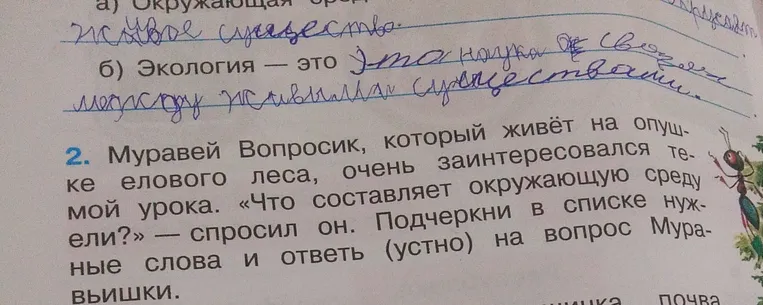 а) Окружающая сред
живое существо.
б) Экология — это Это наука о связях
между живыми существами.
2. Муравей Вопросик, который живёт на опуш-
ке елового леса, очень заинтересовался те-
мой урока. «Что составляет окружающую среду
ели?» — спросил он. Подчеркни в списке нуж-
ные слова и ответь (устно) на вопрос Мура-
вьишки.
почва